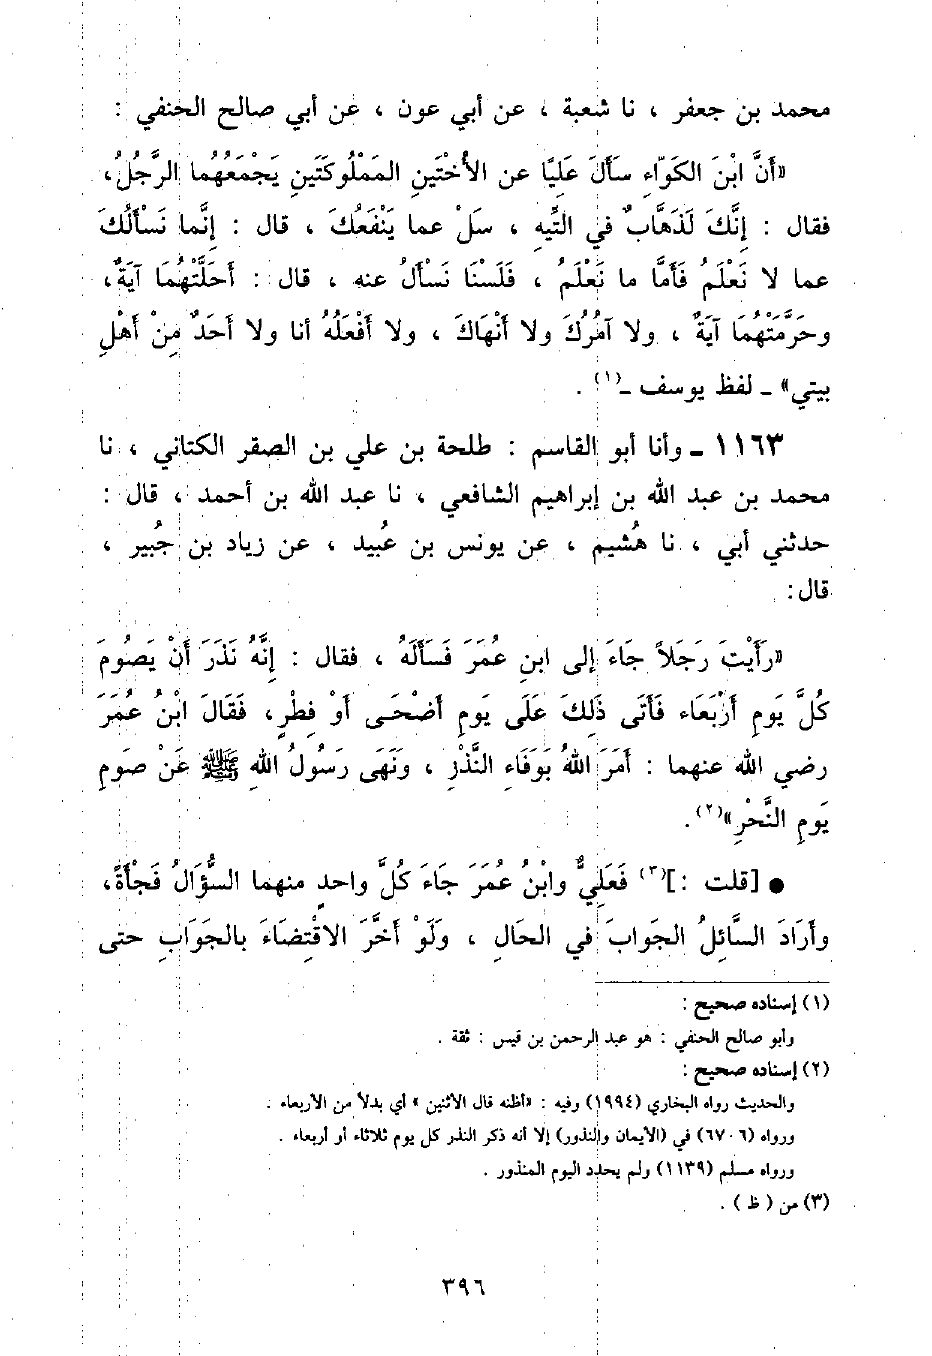 محمد بن جعفر ، نا شعبة ، عن أبي عون ، عن أبي صالح الحنفي :
«أَنَّ ابْنَ الكَوّاءِ سأَلَ عَليًا عن الأُختَينِ المَمْلُوكَتَينِ يَجْمَعُهُما الرَّجُلُ،
فقال : إِنَّكَ لَذَهَّابٌ في التِّيهِ ، سَلْ عما يَنْفَعُكَ ، قال : إِنَّما نَسْأَلُكَ
عما لا نَعْلَمُ فَأَمَّا ما نَعْلَمُ ، فَلَسْنَا نَسْأَلُ عنه ، قال : أَحَلَّتْهُمَا آيَةٌ،
وحَرَّمَتْهُمَا آيَةٌ ، ولا آمُرُكَ ولا أَنْهَاكَ ، ولا أَفْعَلُهُ أنا ولا أَحَدٌ مِنْ أَهْلِ
بيتي» ـ لفظ يوسف ـ(١) .
١١٦٣ ـ وأنا أبو القاسم : طلحة بن علي بن الصقر الكتاني ، نا
محمد بن عبد الله بن إبراهيم الشافعي ، نا عبد الله بن أحمد ، قال :
حدثني أبي ، نا هُشيم ، عن يونس بن عُبيد ، عن زياد بن جُبير ،
قال:
«رَأَيْتَ رَجَلاً جاءَ إلى ابنِ عُمَرَ فَسأَلَهُ ، فقال : إِنَّهُ نَذَرَ أَنْ يَصُومَ
كُلَّ يَومِ أَرْبَعَاء فَأَتَى ذَلِكَ عَلَى يَومِ أَضْحَى أَوْ فِطْرٍ، فَقَالَ ابْنُ عُمَرَ
رضي الله عنهما : أَمَرَ اللهُ بَوفَاءِ النَّذْرِ ، ونَهَى رَسُولُ اللهِ ﷺ عَنْ صَومِ
يَومِ النَّحْرِ»(٢).
● [قلت :](٣) فَعَليٌّ وابْنُ عُمَرَ جاءَ كُلَّ واحدٍ منهما السُّؤَالُ فَجْأَةً،
وأَرَادَ السَّائِلُ الجَوابَ في الحَالِ ، ولَوْ أَخَّرَ الاقْتِضَاءَ بالجَوَابِ حتى
(١) إسناده صحيح :
وأبو صالح الحنفي : هو عبد الرحمن بن قيس : ثقة .
(٢) إسناده صحيح :
والحديث رواه البخاري (١٩٩٤) وفيه : «أظنه قال الاثنين » أي بدلاً من الأربعاء .
ورواه (٦٧٠٦) في (الأيمان والنذور) إلا أنه ذكر النذر كل يوم ثلاثاء أو أربعاء .
ورواه مسلم (١١٣٩) ولم يحدد اليوم المنذور .
(٣) من ( ظ ) .
٣٩٦